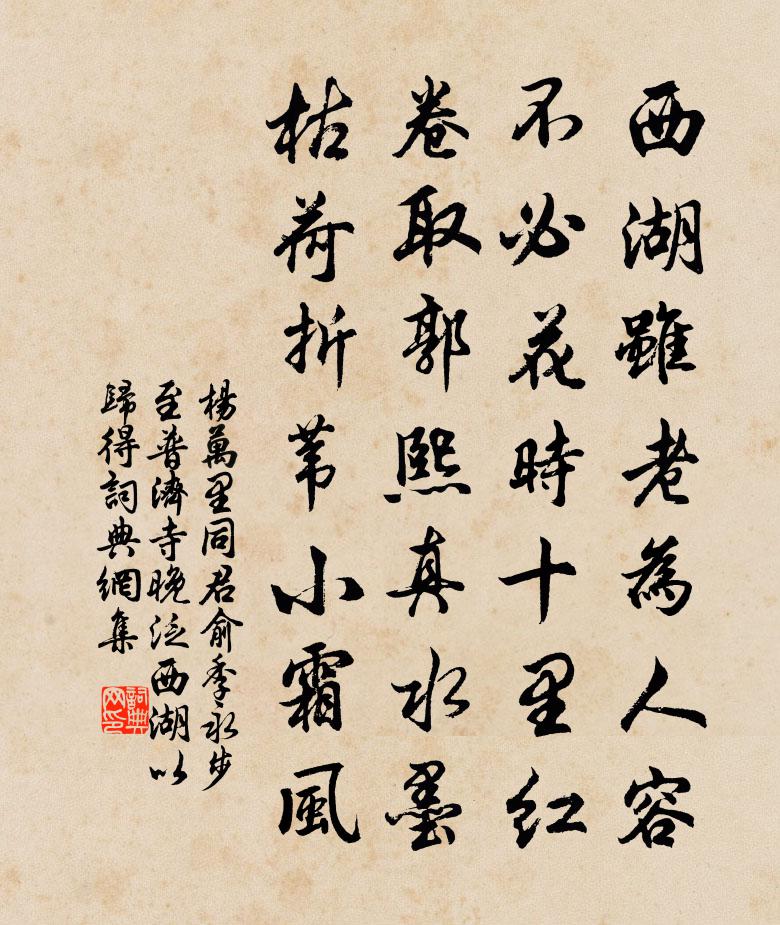 西湖雖老為人容
不必花時十里紅
卷取郭熙真水墨
枯荷折葦小霜風
楊萬里同君俞季永步
至普濟寺晚泛西湖以
歸得詞典網集
詞典
网印